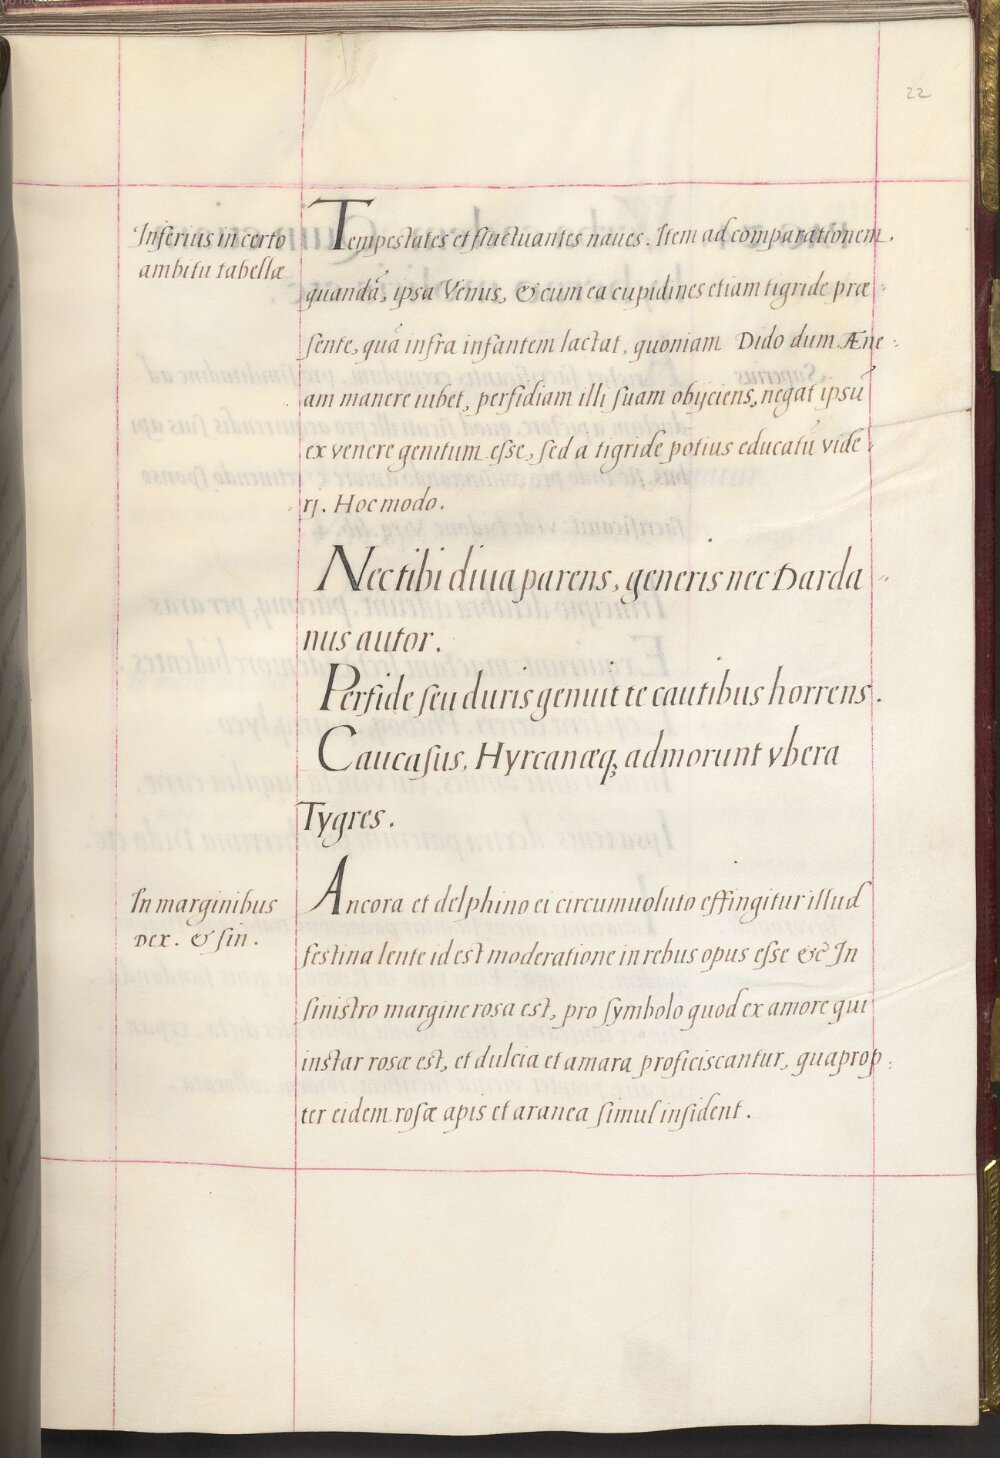 22
Inferius in certo
ambitu tabellæ
Tempestates et fluctuantes naues. Item ad comparationem.
quandã, ipsa Venus, & cum ea cupidines etiam tigride præ-
ſente, quã infra infantem lactat, quoniam Dido dum Æne-
am manere iubet, perfidiam illi ſuam obijciens, negat ipsũ
ex venere genitum eſſe, ſed a tigride potius educatũ vide-
rj. Hoc modo.
Nec tibi diua parens, generis nec Darda-
nus autor.
Perfide ſeu duris genuit te cautibus horrens.
Caucaſus, Hyrcanæq; admorunt vbera
Tygres.
In marginibus
Dex. & ſin.
Ancora et delphino ei circumuoluto effingitur illud
festina lente id est moderatione in rebus opus eſſe &c̃ In
sinistro margine rosa est, pro ſymbolo quod ex amore qui
instar rosæ est, et dulcia et amara proficiscantur, quaprop-
ter eidem roſæ apis et aranea ſimul inſident.